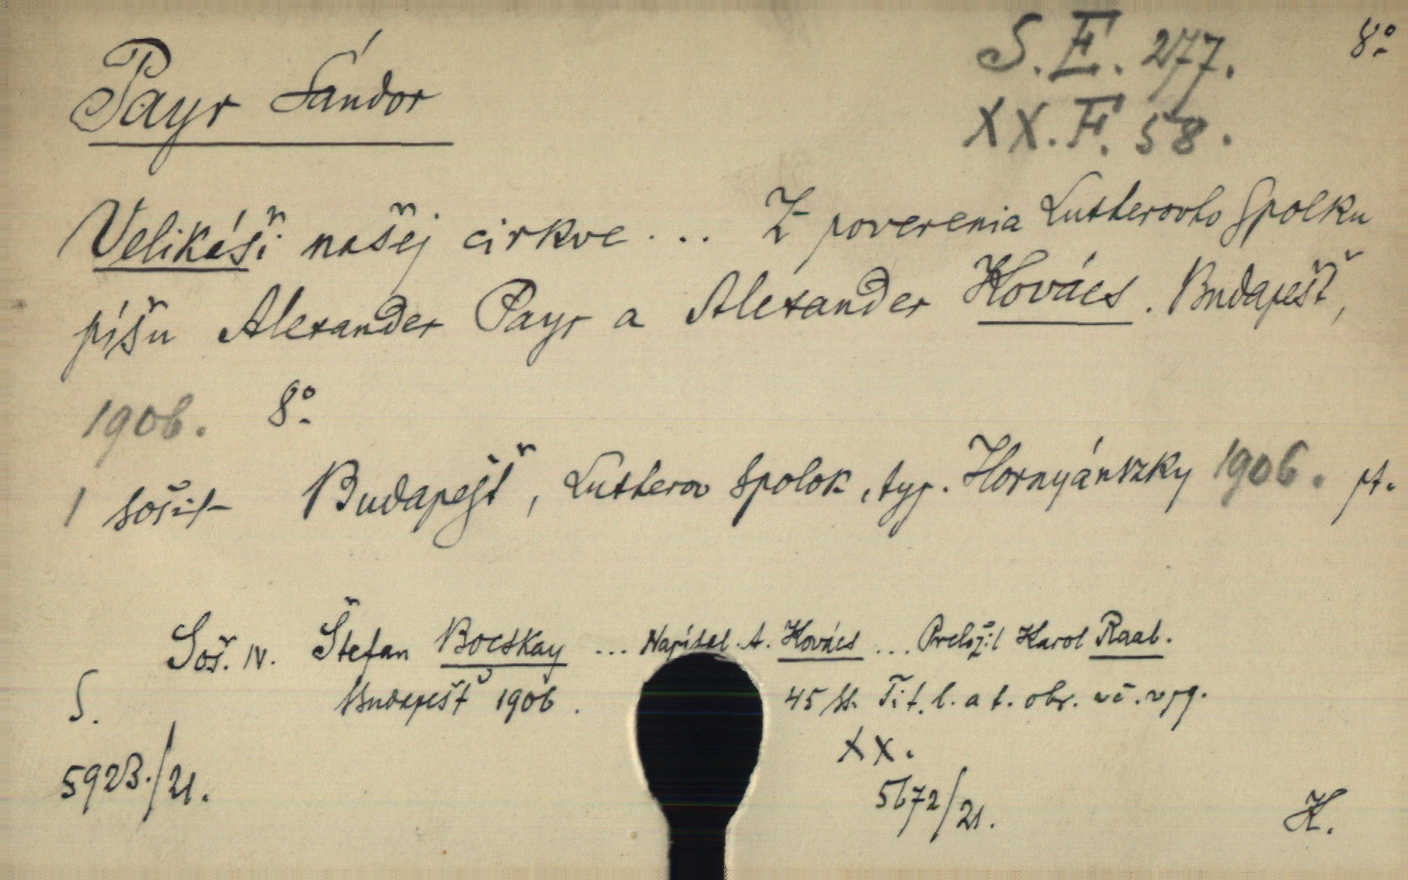 S. E. 277. 8°
Payr Sándor
XX. F. 58.
Velikáši našej cirkve ... Z poverenia Lutherovho Spolku
píšu Alexander Payr a Alexander Kovács. Budapešť,
1906. 8°
1 sošit Budapešť, Lutherov Spolok, typ. Hornyánszky 1906. pt.
Soš. IV. Štefan Bocskay ... Napísal A. Kovács ... Preložil Karol Raab.
S. Budapešť 1906. 45 st. Tit. l. a t. obr.
XX.
5923./21.
5672/21. K.